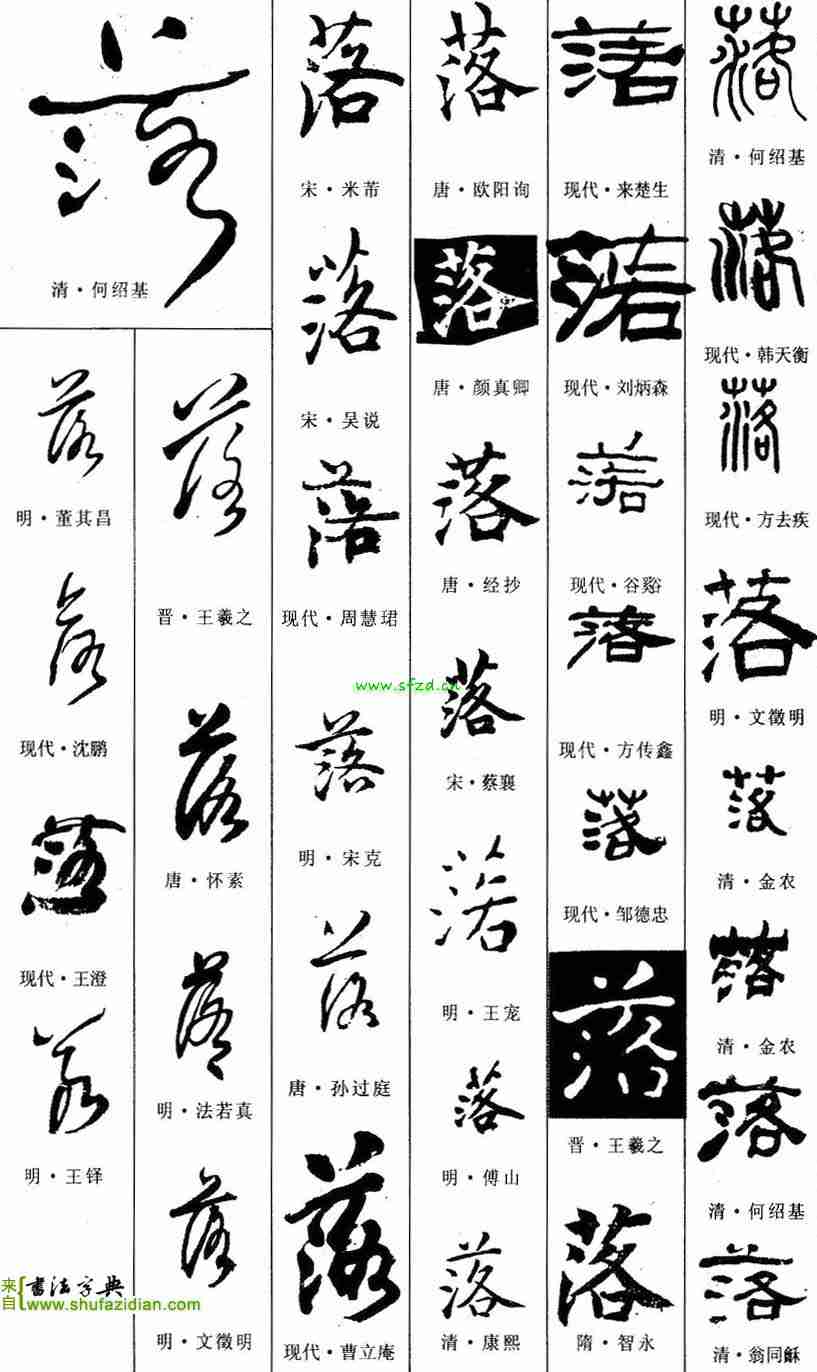 落
清·何绍基
落
明·董其昌
落
现代·沈鹏
落
现代·王澄
落
明·王铎
落
晋·王羲之
落
唐·怀素
落
明·法若真
落
明·文徵明
落
宋·米芾
落
宋·吴说
落
现代·周慧珺
落
明·宋克
落
唐·孙过庭
落
现代·曹立庵
落
唐·欧阳询
落
唐·颜真卿
落
唐·经抄
落
宋·蔡襄
落
明·王宠
落
明·傅山
落
清·康熙
落
现代·来楚生
落
现代·刘炳森
落
现代·谷谿
落
现代·方传鑫
落
现代·邹德忠
落
晋·王羲之
落
隋·智永
落
清·何绍基
落
现代·韩天衡
落
现代·方去疾
落
明·文徵明
落
清·金农
落
清·金农
落
清·何绍基
落
清·翁同龢
www.sfzd.cn
来自
书法字典
www.shufazidian.com